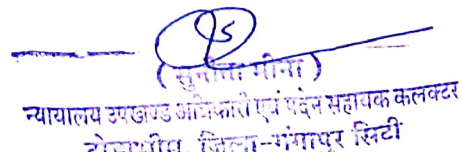 (सुनीता मीना)
न्यायालय उपखण्ड अधिकारी एवं पदेन सहायक कलक्टर
टोडाभीम, जिला-गंगापुर सिटी